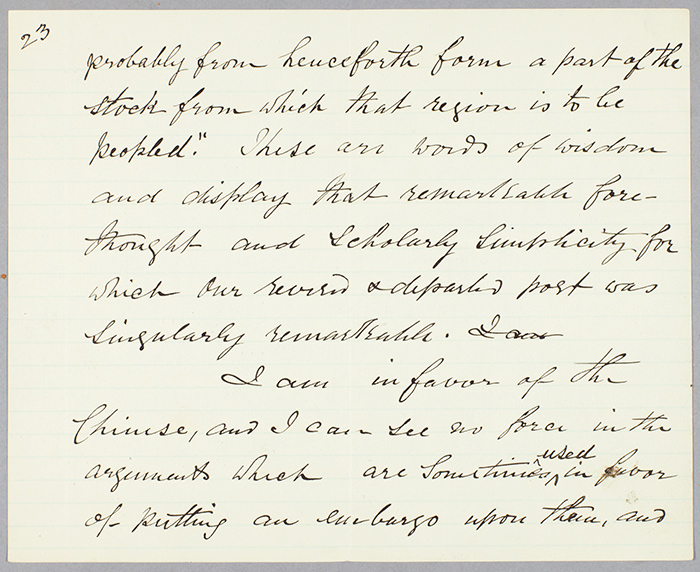 23
probably from henceforth form a part of the
stock from which that region is to be
peopled." These are words of wisdom
and display that remarkable fore-
thought and scholarly simplicity for
which our revered & departed poet was
singularly remarkable. I am
I am in favor of the
Chinese, and I can see no force in the
arguments which are sometimes used in favor
of putting an embargo upon them, and